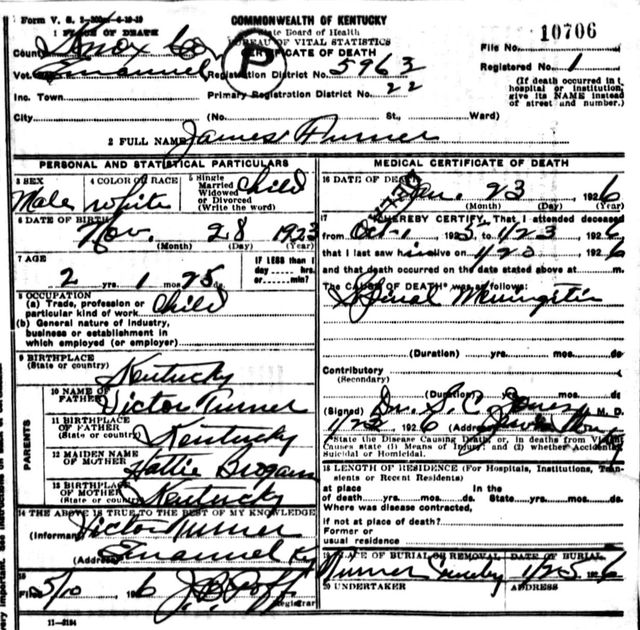 Form V. S.
COMMONWEALTH OF KENTUCKY
State Board of Health
BUREAU OF VITAL STATISTICS
CERTIFICATE OF DEATH
1 PLACE OF DEATH
County Knox Co
P
File No. 10706
Vot. Emanuel Registration District No. 5963
Registered No. 1
Inc. Town Primary Registration District No. 22
(If death occurred in a hospital or institution, give its NAME instead of street and number.)
City (No. St., Ward)
2 FULL NAME James Turner
PERSONAL AND STATISTICAL PARTICULARS
3 SEX Male
4 COLOR OR RACE White
5 Single Married Widowed or Divorced (Write the word) Child
6 DATE OF BIRTH Nov. 28 1923
(Month) (Day) (Year)
7 AGE 2 yrs. 1 mos. 25 ds.
IF LESS than 1 day hrs. or min?
8 OCCUPATION
(a) Trade, profession or particular kind of work Child
(b) General nature of industry, business or establishment in which employed (or employer)
9 BIRTHPLACE
(State or country) Kentucky
PARENTS
10 NAME OF FATHER Victor Turner
11 BIRTHPLACE OF FATHER
(State or country) Kentucky
12 MAIDEN NAME OF MOTHER Hattie Brogans
13 BIRTHPLACE OF MOTHER
(State or country) Kentucky
14 THE ABOVE IS TRUE TO THE BEST OF MY KNOWLEDGE
(Informant) Victor Turner
(Address) Emanuel Ky
15
Filed 5/10 1926 J. B. Goff
Registrar
11-3184
MEDICAL CERTIFICATE OF DEATH
16 DATE OF DEATH Jan. 23 1926
(Month) (Day) (Year)
17 I HEREBY CERTIFY, That I attended deceased
from Oct-1 1925, to 1/23 1926
that I last saw him alive on 1/23 1926
and that death occurred on the date stated above at m.
The CAUSE OF DEATH* was as follows:
Spinal Meningitis
(Duration) yrs. mos. ds.
Contributory
(Secondary)
(Duration) yrs. mos. ds.
(Signed) Dr. S. C. Jones M. D.
1/23 1926 (Address)
*State the Disease Causing Death, or, in deaths from Violent Causes state (1) Means of Injury; and (2) whether Accidental, Suicidal or Homicidal.
18 LENGTH OF RESIDENCE (For Hospitals, Institutions, Transients or Recent Residents)
at place of death yrs. mos. ds. In the State yrs. mos. ds.
Where was disease contracted,
if not at place of death?
Former or usual residence
19 PLACE OF BURIAL OR REMOVAL DATE OF BURIAL
Turner 1/25 1926
20 UNDERTAKER ADDRESS